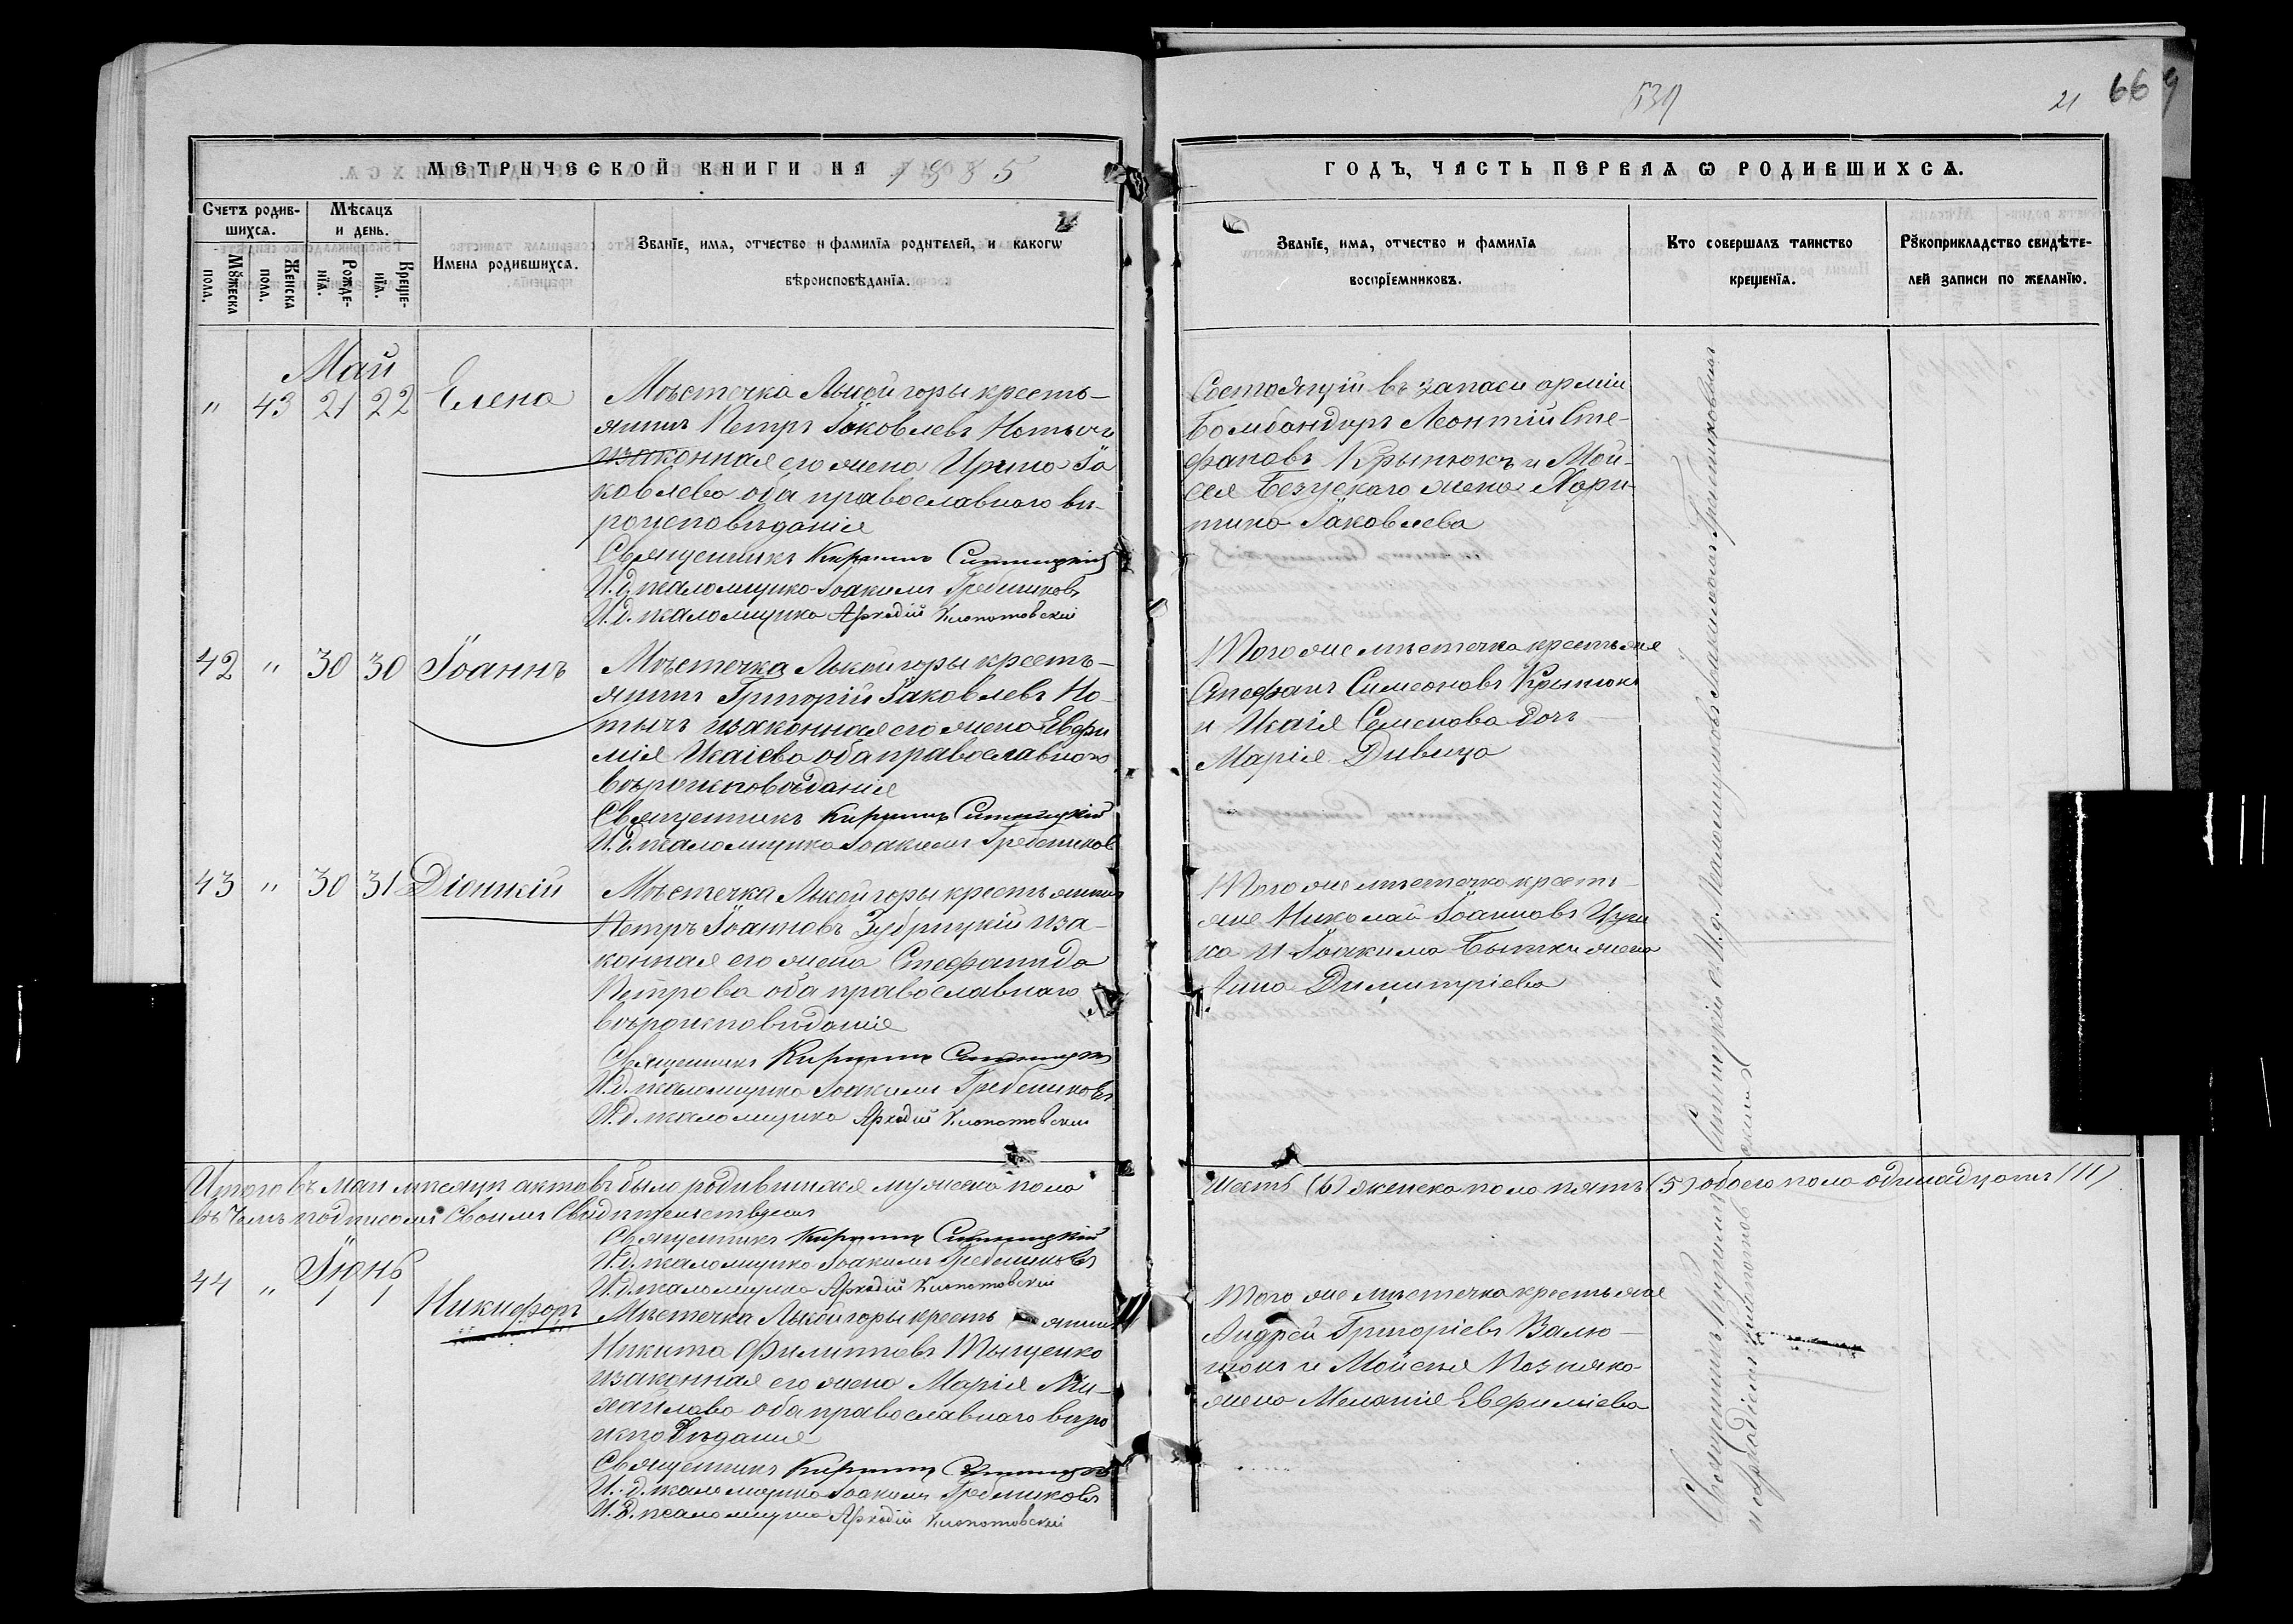 539
21 669
МЕТРИЧЕСКОЙ КНИГИ НА 1885
ГОДЪ, ЧАСТЬ ПЕРВАЯ Ѡ РОДИВШИХСѦ.
Счетъ родив-
шихсѧ.
Мѣсѧцъ
и день.
Мꙋжеска
пола.
Женска
пола.
Рожде-
нїѧ.
Креще-
нїѧ.
Имена родившихсѧ.
Званїе, имѧ, отчество и фамилїѧ родителей, и какогѡ
вѣроисповѣданїѧ.
Званїе, имѧ, отчество и фамилїѧ
воспрїемниковъ.
Кто совершалъ таинство
крещенїѧ.
Рꙋкоприкладство свидѣте-
лей записи по желанїю.
Май
" 43 21 22 Елена
Мѣстечка Лысой горы кресть-
янинъ Петръ Іаковлевъ
изаконная его жена Ирина Іа
ковлева оба православнаго вѣ-
роисповѣданія
Священникъ Кириллъ Ситницкій
И.д. псаломщика Іоакимъ Гребениковъ
И.д. псаломщика Аркадій Клопотовскій
Состоящій въ запасѣ арміи
Бомбандиръ Леонтій Сте-
фановъ Крынюкъ и Мой-
сея Безускаго жена Хари-
тина Іаковлева
42 " 30 30 Іоаннъ
Мѣстечка Лысой горы кресть-
янинъ Григорій Іаковлевъ Но-
тычъ изаконная его жена Евфи
мія Исаіева оба православнаго
вѣроисповѣданія
Священникъ Кириллъ Ситницкій
И.д. псаломщика Іоакимъ Гребениковъ
Того же мѣстечка крестьяне
Стефанъ Симеоновъ Крынюкъ
и Исаія Семенова дочь
Марія Дивица
43 " 30 31 Діонисій
Мѣстечка Лысой горы крестьянинъ
Петръ Іоанновъ Зубрицкій иза-
конная его жена Стефанида
Петрова оба православнаго
вѣроисповѣданія
Священникъ Кириллъ Ситницкій
И.д. псаломщика Іоакимъ Гребениковъ
И.д. псаломщика Аркадій Клопотовскій
Того же мѣстечка кресть-
яне Николай Іоанновъ
и Іоакима жена
Анна Димитріева
Священникъ Кириллъ Ситницкій с И.д. Псаломщиковъ Іоакимомъ Гребениковымъ
и Аркадіемъ Клопотовскимъ
Итого въ маи месяцѣ актовъ было родившихся мужеска пола
шесть (6) женска пола пять (5) обоего пола одинадцать (11)
въ чемъ подписомъ своимъ свидѣтельствуемъ
Священникъ Кириллъ Ситницкій
И.д. псаломщика Іоакимъ Гребениковъ
И.д. псаломщика Аркадій Клопотовскій
Іюнь
44 " 1 1 Никифоръ
Мѣстечка Лысой горы кресть янинъ
Никита Филиповъ Тыщенко
изаконная его жена Марія Ми-
хайлова оба православнаго вѣро
исповѣданія
Священникъ Кириллъ Ситницкій
И.д. псаломщика Іоакимъ Гребениковъ
И.д. псаломщика Аркадій Клопотовскій
Того же мѣстечка крестьяне
Андрей Григоріевъ Валю-
и Мойсея Позняка
жена Меланія Евфиміева